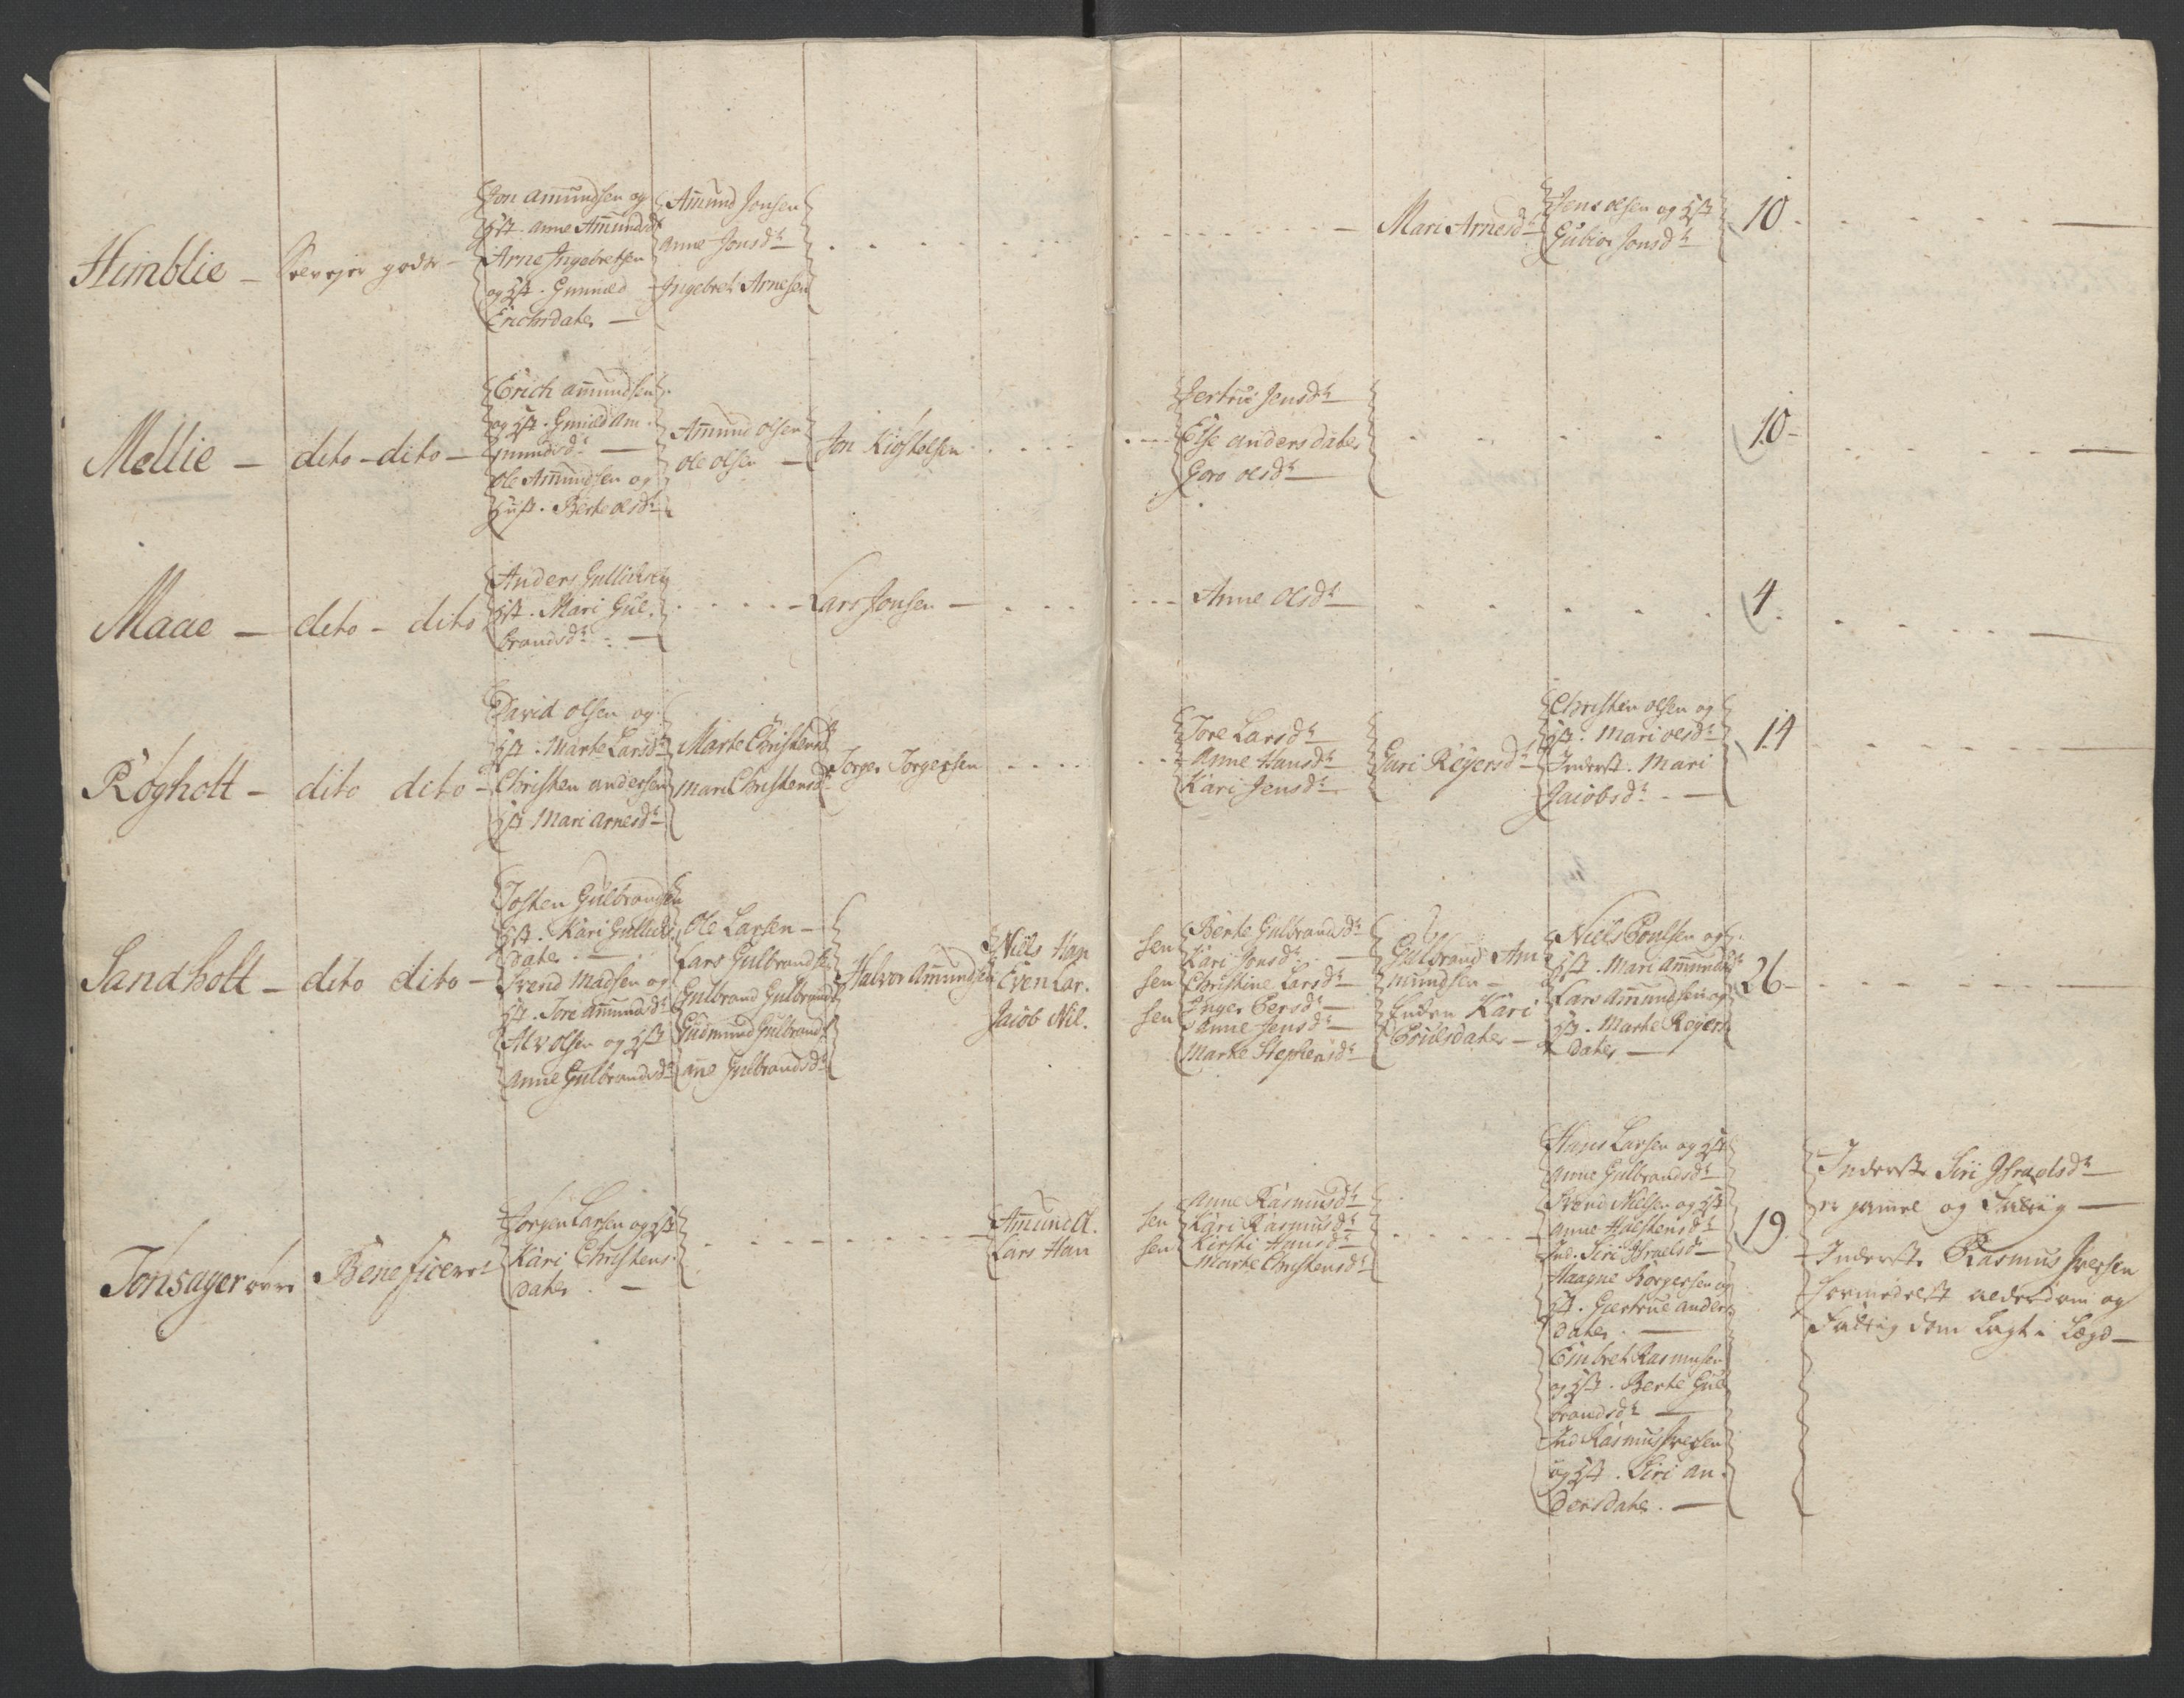 Himblie — Selvejer godts —
Jon Amundsen og
Hst. Anne Amundsd
Arne Ingebretsen
og Hst. Gunnild
Erichsdater —
Amund Jonsen
Anne Jonsdr —
Ingebret Arnesen
Mari Arnesdr —
Jens olsen og Hst
Gubior Jonsdr —
10 -
Mellie — dito - dito —
Erich amundsen
og Hst. Gunild Am.
mundsdr —
Ole Amundsen og
Hust. Berte olsdr —
Amund olsen
ole olsen —
Jon Kiøstelsen
Jertrü Jensdr —
Else andersdater
Goro olsdr —
10 -
Maae — dito - dito
Anders Gullichsen
Hst. Mari Gul.
brandsdr —
Lars Jonsen —
Anne olsdr —
4 -
Røgholt — dito dito -
David olsen og
Hst. Marte Larsdr
Christen andersen
Hst Mari arnesdr —
Marte Christensd
Mari Christensdr
Torger Torgersen
Tore Larsdr —
Anne Hansdr —
Kari Jensdr —
Guri Reyersdr —
Christen olsen og
Hst. Mari olsdr —
Inderst. Mari
Jacobsdr —
14
Sandholt — dito dito —
Tosten Gulbrandsen
Hst. Kari Gullichs
dater —
Svend Madsen og
Hst. Tore amundsdr
Alv olsen og Hst
Anne Gulbrandsdr
Ole Larsen —
Lars Gulbrandsen
Gulbrand Gulbrands
Gudmund Gulbrands
ane Gulbrandsdr
Halvor Amundsen
Niels Han
Even Lar.
Jacob Nil.
sen
sen
sen
Berte Gulbrandsdr —
Kari Jonsdr —
Christine Larsdr —
Inger Persdr —
Anne Jensdr —
Marte Stephensdr
Gulbrand Am
mundsen —
Enken Kari
Povelsdater —
Niels Poulsen og
Hst. Mari amundsdr
Lars Amundsen og
Hst. Marte Reyers
dater —
26 -
Tonsager øvre Beneficeret
Jørgen Larsen og Hst
Kari Christens.
dater —
Amund A.
Lars Han
sen
sen
Anne Rasmusdr
Kari Rasmusdr
Kirsti Hansdr —
Marte Christensdr
Hans Larsen og Hst
Anne Gulbrandsdr
Svend Nielsen og Hst
Anne Halstensdr
Ind. Siri Israelsd —
Haagne Børgersen og
Hst. Giertrue anders
dater —
Embret Rasmusen
og Hst. Berte Gul
brandsdr —
Ind Rasmus Iversen
og Hst. Siri An.
dersdater —
19
Inderste Siri Israelsdr —
er gamel og Fattig —
Inderste Rasmus Iversen
formedelst alderdom og
Fattigdom lagt i Lægd —